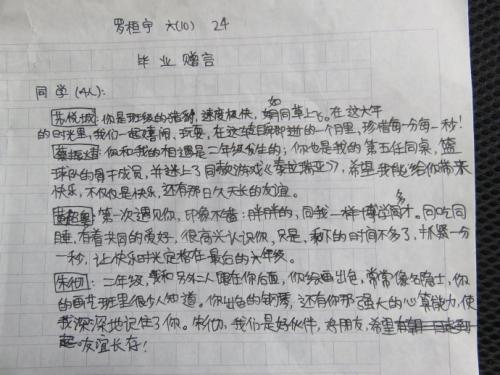 罗桓宇 六(10) 24
毕业赠言
同学(4人):
苏悦城:你是班级的猎豹,速度极快,如同草上飞。在这大半
的时光里,我们一起嬉闹,玩耍,在这转瞬即逝的一个月里,珍惜每一分每一秒!
蔡振煌:你和我的相遇是二年级发生的;你也是我的第五任同桌,篮
球队的骨干成员,并迷上了同款游戏《泰拉瑞亚》,希望我能给你带来
快乐,不仅仅是快乐,还有那日久天长的友谊。
第一次遇见你,印象不错:胖胖的,同我一样博学多才。同吃同
睡,有着共同的爱好,很高兴认识你,只是,剩下的时间不多了,抓紧一分
一秒,让快乐时光定格在最后的六年级。
朱彻:二年级,我和另外二人跟在你后面,你绘画出色,常常像名隐士,你
的画艺班里很少人知道。你出色的钢琴,还有你那强大的心算能力,使
我深深地记住了你。朱彻,我们是好伙伴,好朋友,希望
友谊长存!